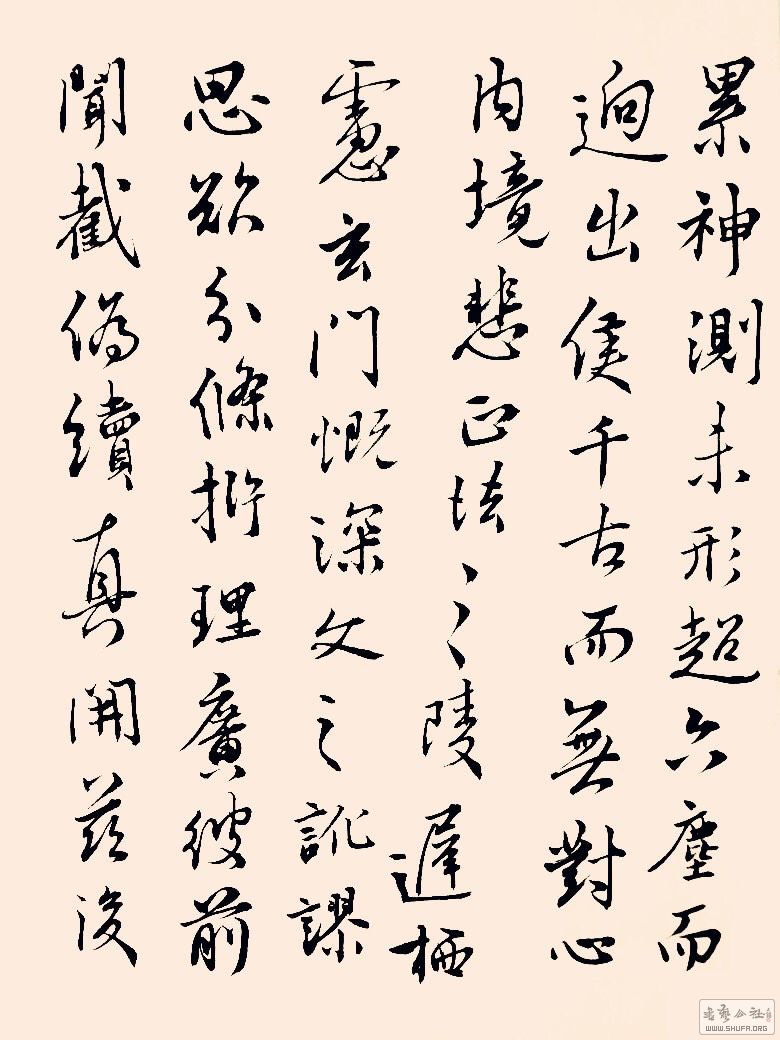 累神測未形超六塵而
迥出隻千古而無對心
內境悲正法之陵遲栖
慮玄門慨深文之訛謬
思欲分條析理廣彼前
聞截偽續真開茲後
書藝公社
WWW.SHUFA.ORG